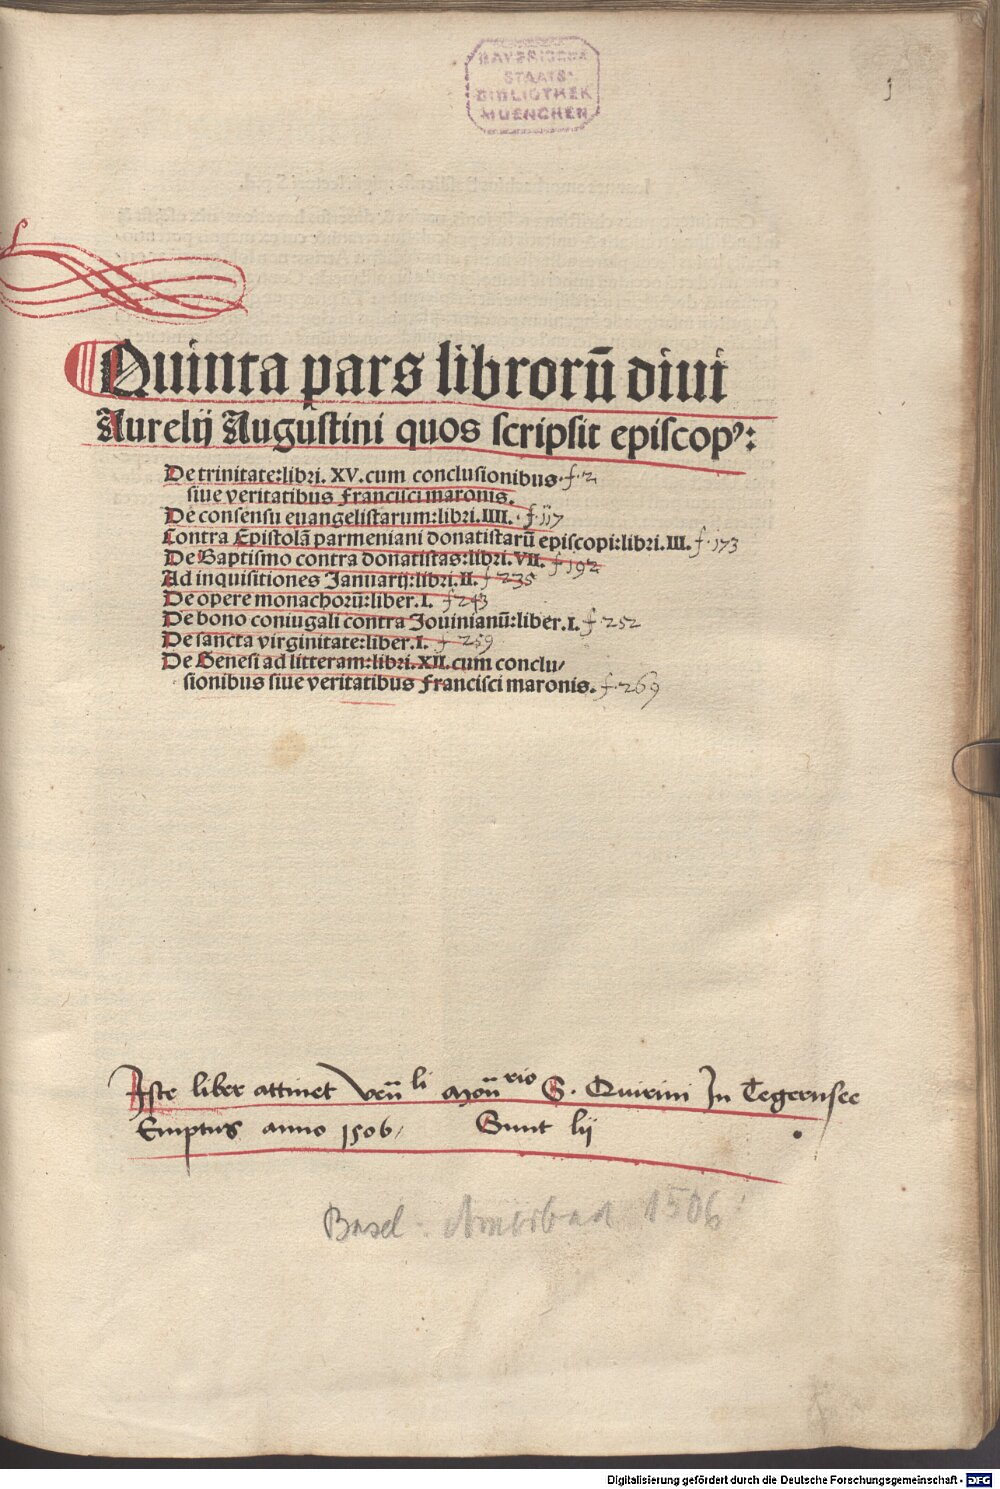 BAYERISCHE
STAATS-
BIBLIOTHEK
MUENCHEN
1
Quinta pars librorū diui
Aurelij Augustini quos scripsit episcopꝰ:
De trinitate:libri. XV. cum conclusionibus. f. 2
siue veritatibus Francisci maronis.
De consensu euangelistarum:libri. IIII. f. 117
Contra Epistolā parmeniani donatistarū episcopi:libri. III. f. 173
De Baptismo contra donatistas:libri. VII. f 192
Ad inquisitiones Januarij:libri. II. f 235
De opere monachorū:liber. I. f 243
De bono coniugali contra Jouinianū:liber. I. f 252
De sancta virginitate:liber. I. f 259
De Genesi ad litteram:libri. XII. cum conclu/
sionibus siue veritatibus Francisci maronis. f. 269
Iste liber attinet Ven̄li Mon̄rio S. Quirini In Tegernsee
Emptus anno 1506 Sunt lij
Basel: Amerbach 1506
Digitalisierung gefördert durch die Deutsche Forschungsgemeinschaft - DFG